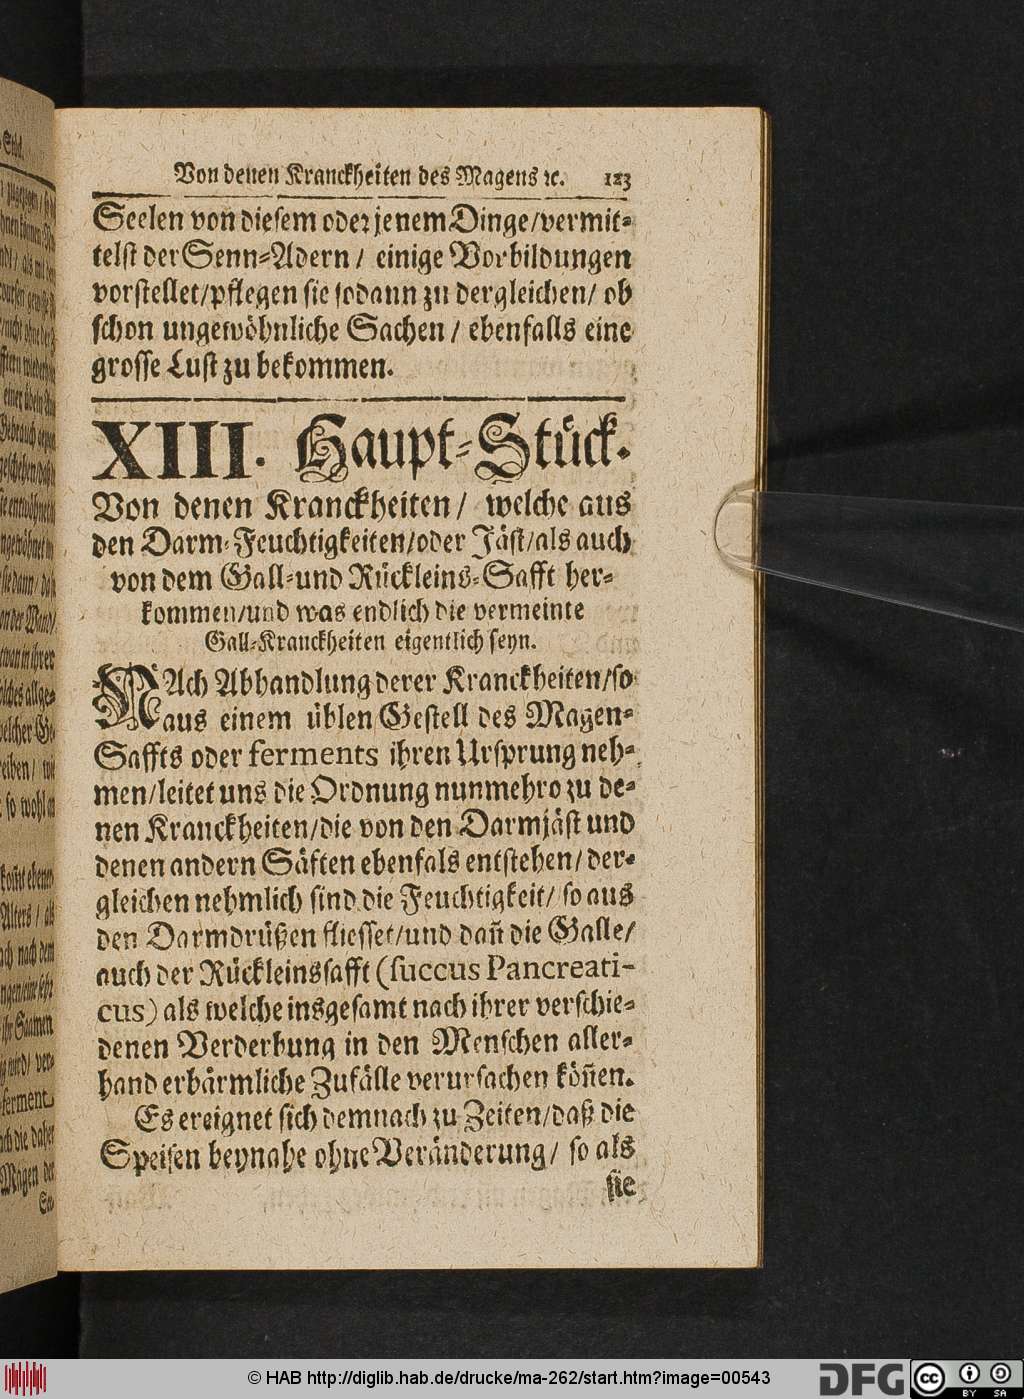 Von denen Kranckheiten des Magens ꝛc. 123
Seelen von diesem oder jenem Dinge/vermit-
telst der Senn-Adern / einige Vorbildungen
vorstellet/pflegen sie sodann zu dergleichen/ ob
schon ungewöhnliche Sachen / ebenfalls eine
grosse Lust zu bekommen.
XIII. Haupt-Stück.
Von denen Kranckheiten / welche aus
den Darm-Feuchtigkeiten/oder Jäst/als auch
von dem Gall-und Rückleins-Safft her-
kommen/und was endlich die vermeinte
Gall-Kranckheiten eigentlich seyn.
NAch Abhandlung derer Kranckheiten/so
aus einem üblen Gestell des Magen-
Saffts oder ferments ihren Ursprung neh-
men/leitet uns die Ordnung nunmehro zu de-
nen Kranckheiten/die von den Darmjäst und
denen andern Säften ebenfals entstehen/ der-
gleichen nehmlich sind die Feuchtigkeit/ so aus
den Darmdrüßen fliesset/und dañ die Galle/
auch der Rückleinssafft (succus Pancreati-
cus) als welche insgesamt nach ihrer verschie-
denen Verderbung in den Menschen aller-
hand erbärmliche Zufälle verursachen köñen.
Es ereignet sich demnach zu Zeiten/daß die
Speisen beynahe ohne Veränderung/ so als
sie
© HAB http://diglib.hab.de/drucke/ma-262/start.htm?image=00543
DFG
cc
BY SA